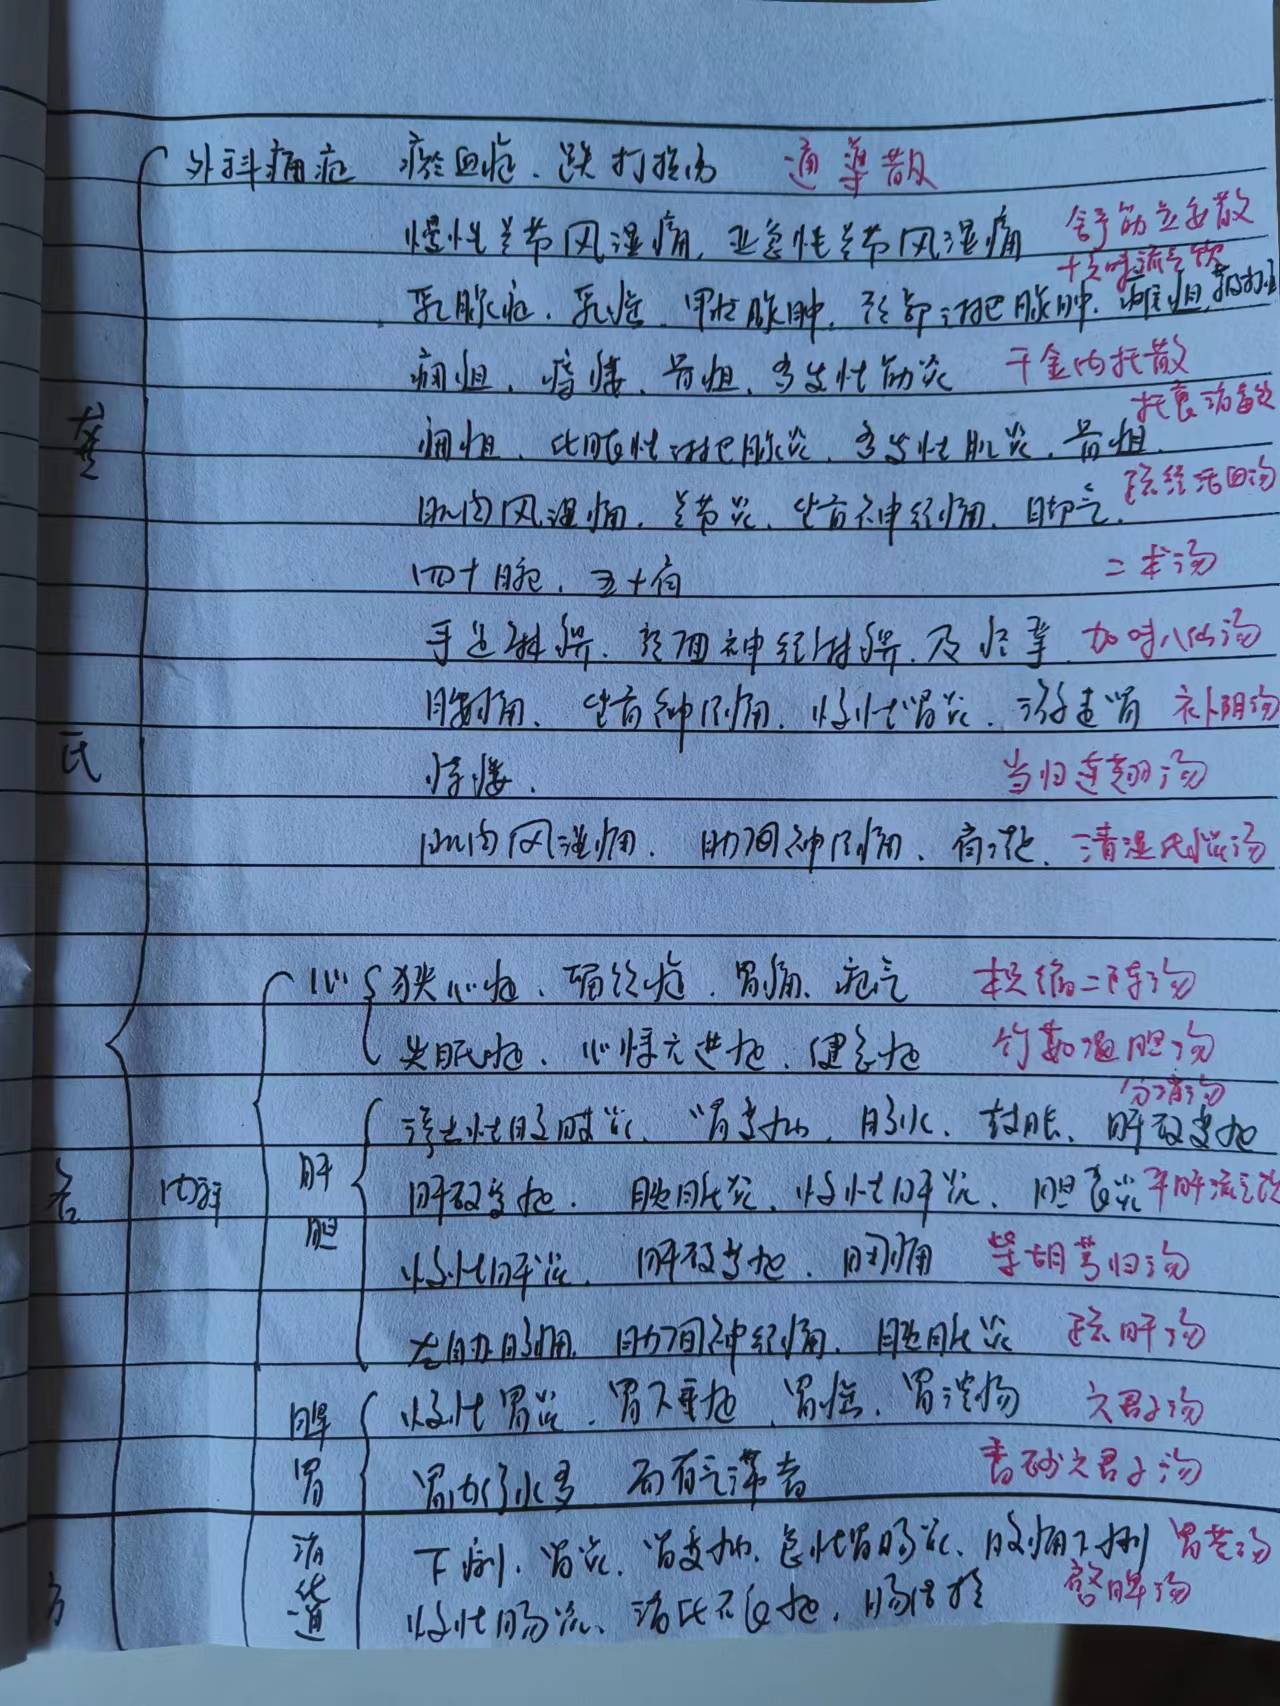 龚氏名方
外科痛症 瘀血症、跌打损伤 通导散
慢性关节风湿痛、亚急性关节风湿痛 舒筋立安散
十六味流气饮
乳腺症、乳癌、甲状腺肿、颈部淋巴腺肿、瘰疽
痈疽、痔瘘、骨疽、多发性筋炎 千金内托散
托里消毒饮
痈疽、化脓性淋巴腺炎、多发性肌炎、骨疽
肌肉风湿痛、关节炎、坐骨神经痛、脚气 疏经活血汤
四十腕、五十肩 二术汤
手足麻痹、颜面神经麻痹、及 加味八仙汤
腰痛、坐骨神经痛、慢性肾炎、游走肾 补阴汤
痔瘘 当归连翘汤
肌肉风湿痛、肋间神经痛、 清湿化痰汤
内科
心 狭心症、胃痛、疝气 枳缩二陈汤
失眠症、心悸亢进症、健忘症 竹茹温胆汤
分消汤
肝胆 渗出性腹膜炎、胃, 腹水、鼓胀、肝硬变症
肝硬变症、胆肚炎、慢性肝炎、胆囊炎 平肝流气饮
慢性肝炎、肝硬变症、 柴胡芎归汤
左胁腹痛、肋间神经痛、 疏肝汤
脾胃 慢性胃炎、胃下垂症、胃癌、胃溃疡 六君子汤
胃内停水多 而有气滞者 香砂六君子汤
消化道 下痢、胃炎、急性胃肠炎、腹痛下痢 胃苓汤
慢性肠炎、消化不良症、肠结核 启脾汤